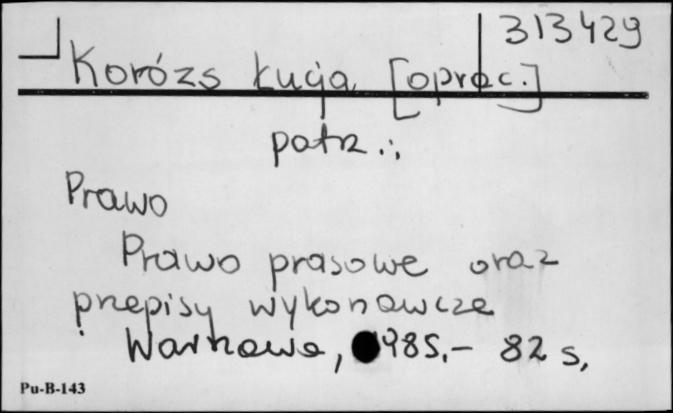 313429
Korózs Łucja [oprac.]
patrz.:
Prawo
Prawo prasowe oraz
przepisy wykonawcze
Warszawa, 1985.- 82 s.
Pu-B-143